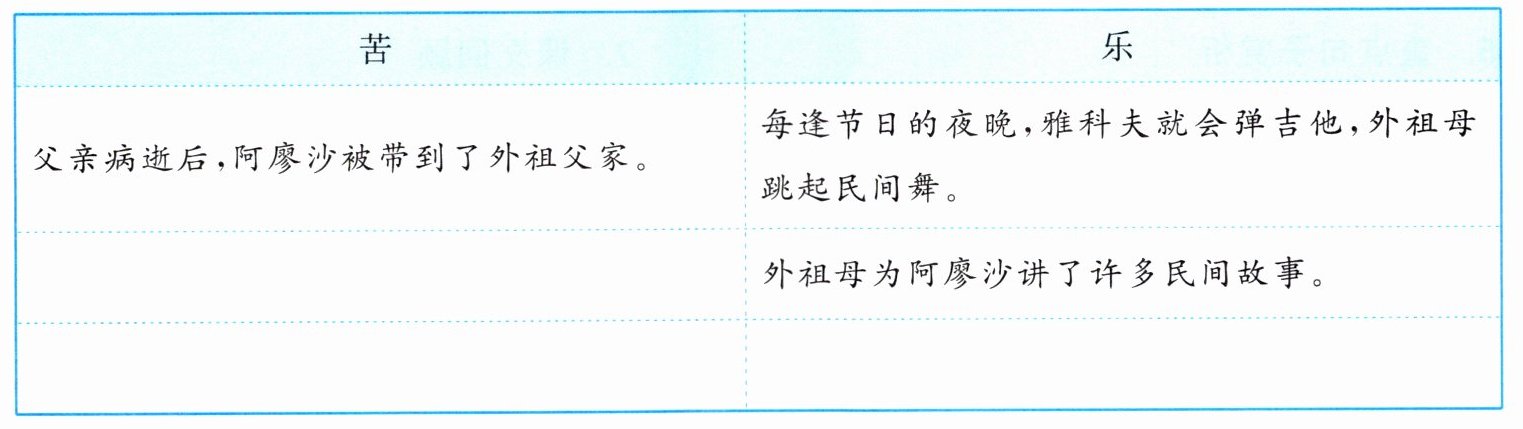 苦
乐
父亲病逝后,阿廖沙被带到了外祖父家。
每逢节日的夜晚,雅科夫就会弹吉他,外祖母
跳起民间舞。
外祖母为阿廖沙讲了许多民间故事。